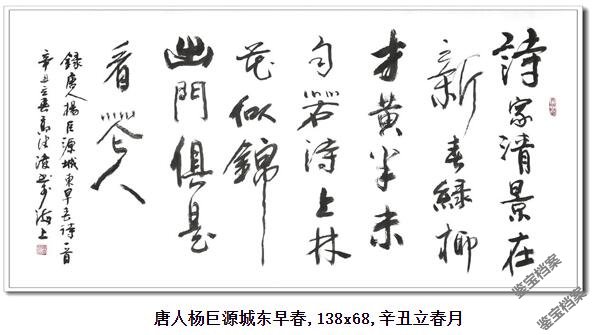 詩家清景在
新春綠柳
才黃半未
勻若待上林
花似錦
出門俱是
看花人
錄唐人楊巨源城東早春詩一首
辛丑立春 海上
鉴宝档案
鉴宝档案
唐人杨巨源城东早春,138x68,辛丑立春月